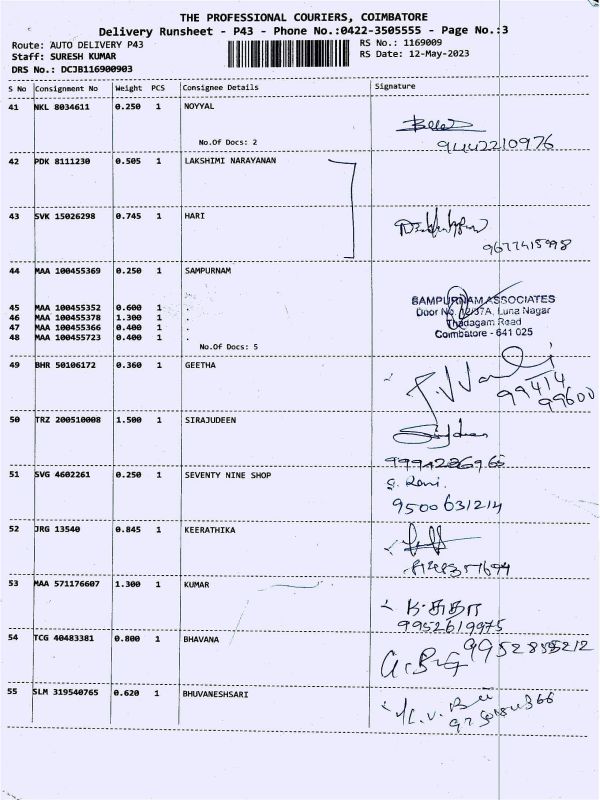 THE PROFESSIONAL COURIERS, COIMBATORE
Delivery Runsheet - P43 - Phone No.:0422-3505555 - Page No.:3
Route: AUTO DELIVERY P43 RS No.: 1169009
Staff: SURESH KUMAR RS Date: 12-May-2023
DRS No.: DCJB116900903
S No Consignment No Weight PCS Consignee Details Signature
41 NKL 8034611 0.250 1 NOYYAL
No.Of Docs: 2
9442210976
42 PDK 8111230 0.505 1 LAKSHIMI NARAYANAN
43 SVK 15026298 0.745 1 HARI
9677415998
44 MAA 100455369 0.250 1 SAMPURNAM
SAMPURNAM ASSOCIATES
45 MAA 100455352 0.600 1 .
Door No. 12/37A, Luna Nagar
46 MAA 100455378 1.300 1 .
Thadagam Road
47 MAA 100455366 0.400 1 .
Coimbatore - 641 025
48 MAA 100455723 0.400 1 .
No.Of Docs: 5
49 BHR 50106172 0.360 1 GEETHA
99414
99600
50 TRZ 200510008 1.500 1 SIRAJUDEEN
51 SVG 4602261 0.250 1 SEVENTY NINE SHOP
S. Rani.
9500631214
52 JRG 13540 0.845 1 KEERATHIKA
53 MAA 571176607 1.300 1 KUMAR
9952619975
54 TCG 40483381 0.800 1 BHAVANA
55 SLM 319540765 0.620 1 BHUVANESHSARI